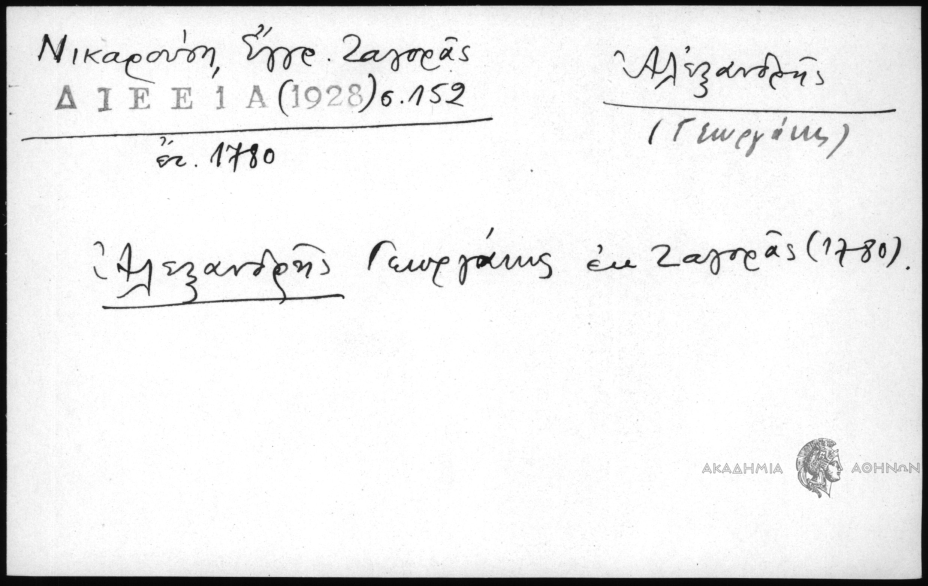 Νικαρούση, Ἔγγρ. Ζαγορᾶς
ΔΙΕΕ ΙΑ (1928) σ. 152
ἔτ. 1780
Ἀλεξανδρῆς
(Γεωργάκης)
Ἀλεξανδρῆς Γεωργάκης ἐκ Ζαγορᾶς (1780).
ΑΚΑΔΗΜΙΑ ΑΘΗΝΩΝ